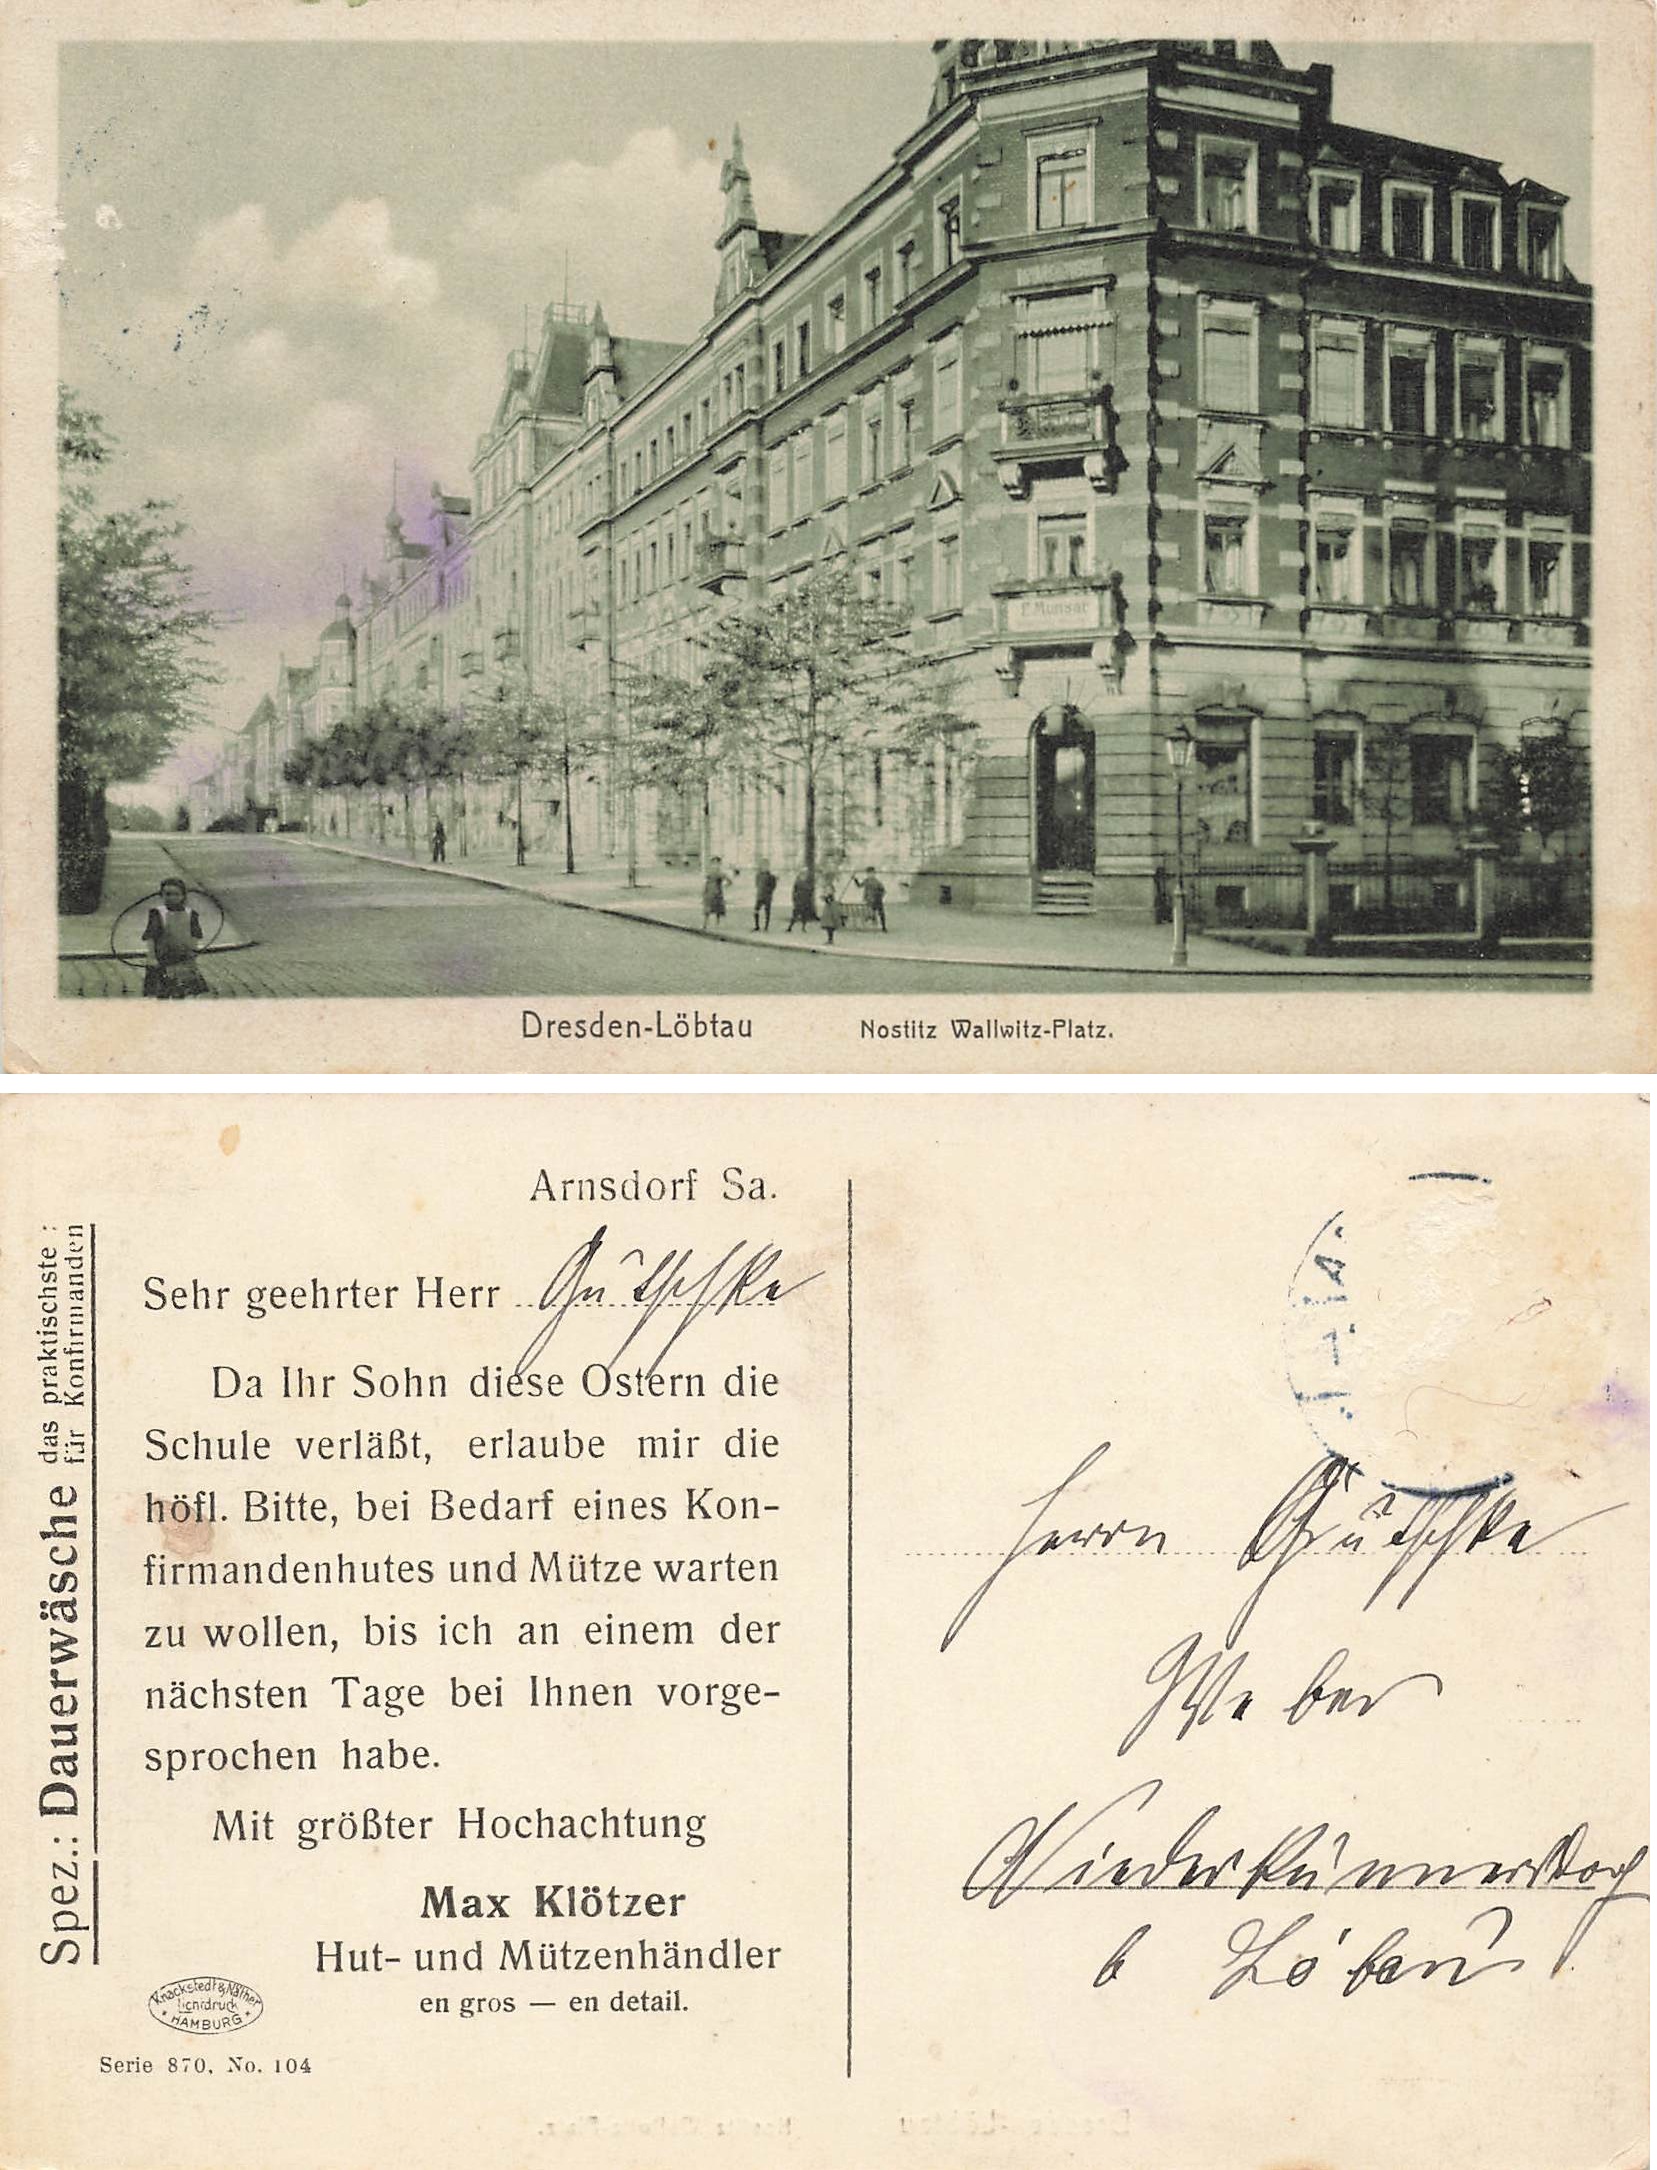 F. Munsat
Dresden-Löbtau Nostitz Wallwitz-Platz.
Spez.: Dauerwäsche das praktischste :
für Konfirmanden
Arnsdorf Sa.
Sehr geehrter Herr Gütschke
Da Ihr Sohn diese Ostern die
Schule verläßt, erlaube mir die
höfl. Bitte, bei Bedarf eines Kon-
firmandenhutes und Mütze warten
zu wollen, bis ich an einem der
nächsten Tage bei Ihnen vorge-
sprochen habe.
Mit größter Hochachtung
Max Klötzer
Hut- und Mützenhändler
en gros — en detail.
Knackstedt & Näther
Lichtdruck
HAMBURG
Serie 870, No. 104
Herrn Gütschke
Weber
Niederkunnersdorf
b Löbau